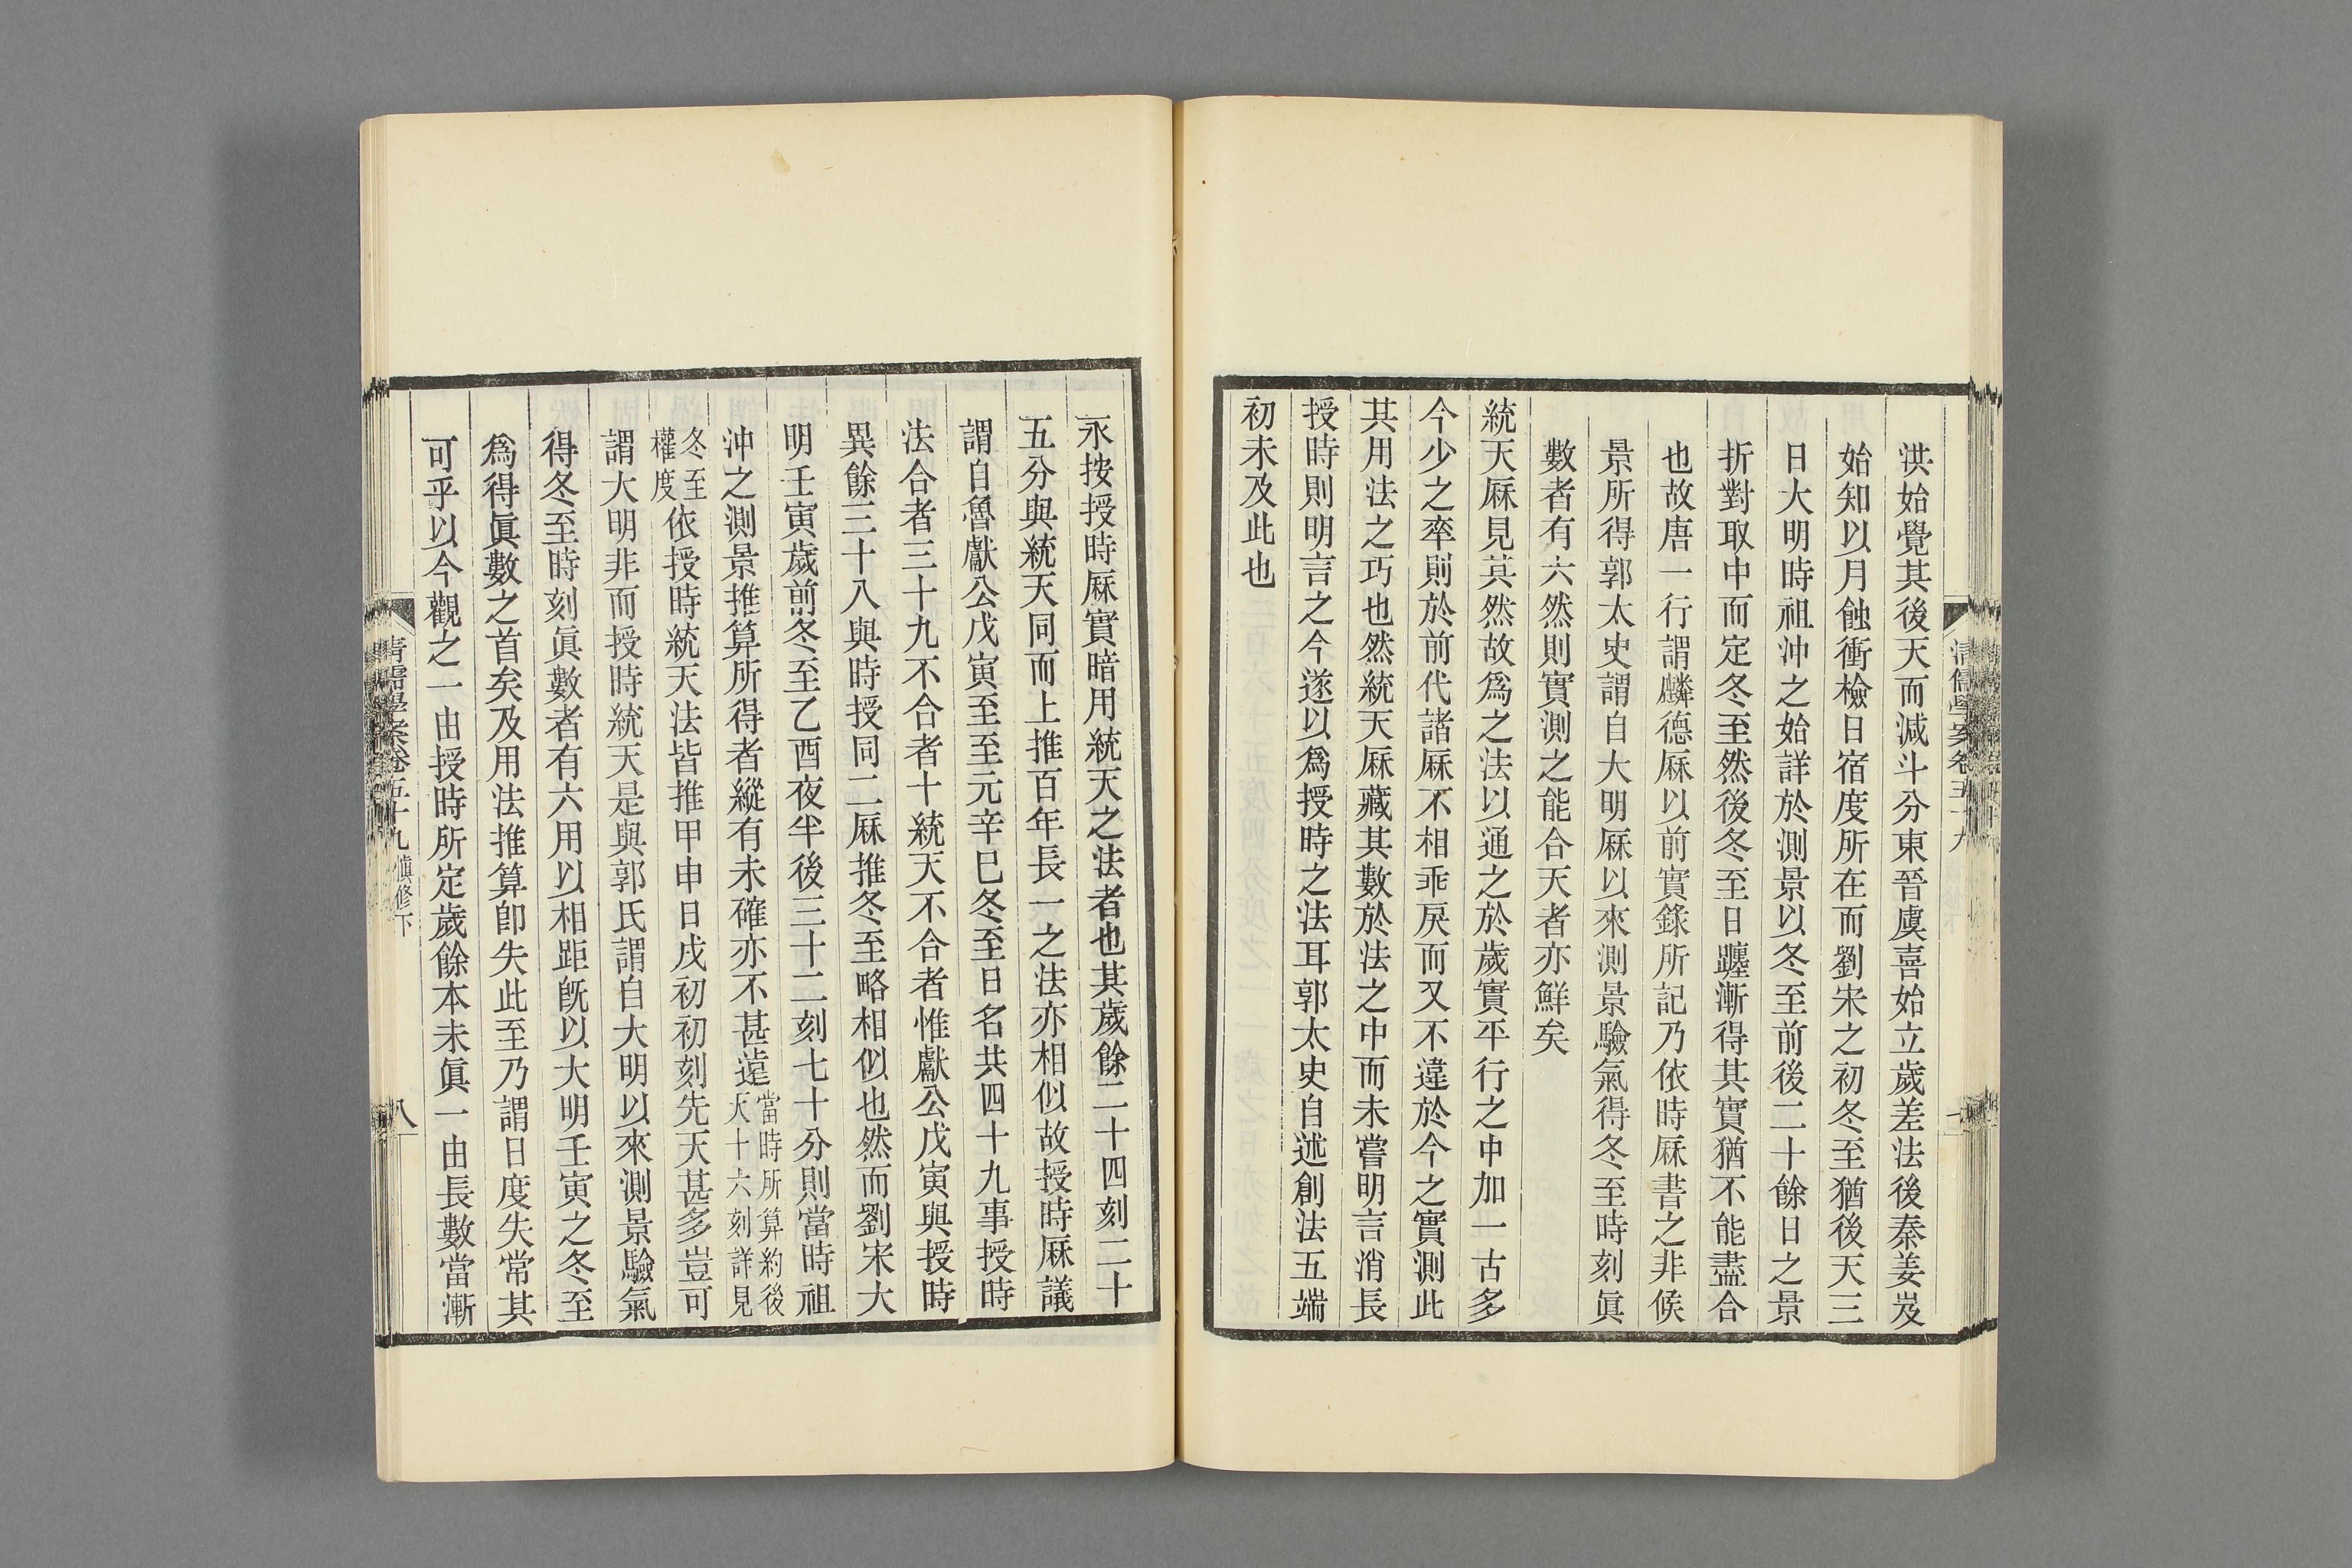 洪始覺其後天而減斗分東晉虞喜始立歲差法後秦姜岌
始知以月蝕衝檢日宿度所在而劉宋之初冬至猶後天三
日大明時祖沖之始詳於測景以冬至前後二十餘日之景
折對取中而定冬至然後冬至日躔漸得其實猶不能盡合
也故唐一行謂麟德厤以前實錄所記乃依時厤書之非候
景所得郭太史謂自大明厤以來測景驗氣得冬至時刻眞
數者有六然則實測之能合天者亦鮮矣
統天厤見其然故爲之法以通之於歲實平行之中加一古多
今少之率則於前代諸厤不相乖戾而又不違於今之實測此
其用法之巧也然統天厤藏其數於法之中而未嘗明言消長
授時則明言之今遂以爲授時之法耳郭太史自述創法五端
初未及此也
永按授時厤實暗用統天之法者也其歲餘二十四刻二十
五分與統天同而上推百年長一之法亦相似故授時厤議
謂自魯獻公戊寅至至元辛巳冬至日名共四十九事授時
法合者三十九不合者十統天不合者惟獻公戊寅與授時
異餘三十八與時授同二厤推冬至略相似也然而劉宋大
明壬寅歲前冬至乙酉夜半後三十二刻七十分則當時祖
沖之測景推算所得者縱有未確亦不甚遠當時所算約後天十六刻詳見
冬至權度依授時統天法皆推甲申日戌初初刻先天甚多豈可
謂大明非而授時統天是與郭氏謂自大明以來測景驗氣
得冬至時刻眞數者有六用以相距旣以大明壬寅之冬至
爲得眞數之首矣及用法推算卽失此至乃謂日度失常其
可乎以今觀之一由授時所定歲餘本未眞一由長數當漸
清儒學案卷五十九 愼修下
八